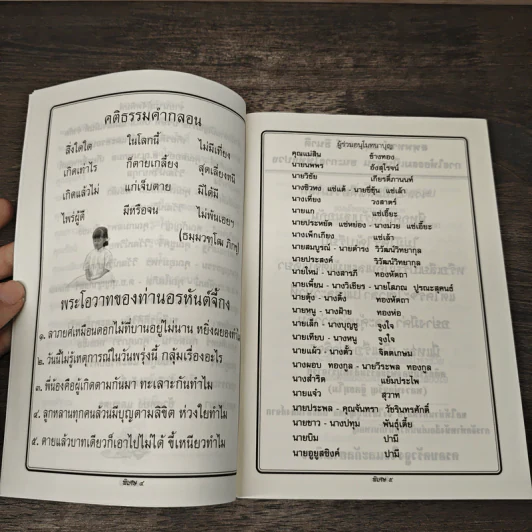 คติธรรมคำกลอน
สิ่งใดใด ในโลกนี้ ไม่มีเที่ยง
เกิดเท่าไร ก็ตายเกลี้ยง สุดเลี่ยงหนี
เกิดแล้วไม่ แก่เจ็บตาย มีได้มี
ไพร่ผู้ดี มีหรือจน ไม่พ้นเอยฯ
พระโอวาทของท่านอรหันต์จี้กง
๑. ลาภยศเหมือนดอกไม้ที่บานอยู่ไม่นาน หยิ่งผยองทำ
๒. วันนี้ไม่รู้เหตุการณ์ในวันพรุ่งนี้ กลุ้มเรื่องอะไร
๓. พี่น้องคือผู้เกิดตามกันมา ทะเลาะกันทำไม
๔. ลูกหลานทุกคนล้วนมีบุญตามลิขิต ห่วงใยทำไม
๕. ตายแล้วบาทเดียวก็เอาไปไม่ได้ ขี้เหนียวทำไม
พิเศษ ๔
ผู้ร่วมอนุโมทนาบุญ
คุณแม่สิน ช้างทอง
นายนพพร อังสุโรจน์
นายวิชัย เกียรติภานนท์
นายชิวหง แซ่แต้ - นายยี่ซุ้น แซ่เล้า
นางเที่ยง วงสาตร์
นายแก แซ่เอี๊ยะ
นายประหยัด แซ่หย่อง - นางม่วย แซ่เอี๊ยะ
นางเพ็กเกียง แซ่เล้า
นายสมบูรณ์ - นายดำรง วิวัฒน์วิทยากุล
นายประสงค์ วิวัฒน์วิทยากุล
นายใหม่ - นางสารภี ทองหัตถา
นายเพี้ยน - นางวิเชียร - นายโสภณ ปูรณะสุคนธ์
นายตุ้ง - นางติ๋ง ทองหัตถา
นายหนู - นางฝ้าย ทองห่อ
นายเล็ก - นางบุญชู จูงใจ
นายเทียบ - นางหนู จูงใจ
นายแผ้ว - นางตั้ว จิตตเกษม
นางผอบ ทองกูล - นายวีระพล ทองกูล
นางสำรีด แย้มประไพ
นายแจ๋ว สุวาท
นายประพล - คุณจันทรา วัชรินทรศักดิ์
นายขาว - นางปทุม พันธุ์เตี้ย
นายบิม ปามี
นายอูยูสซิงค์ ปามี
พิเศษ ๕